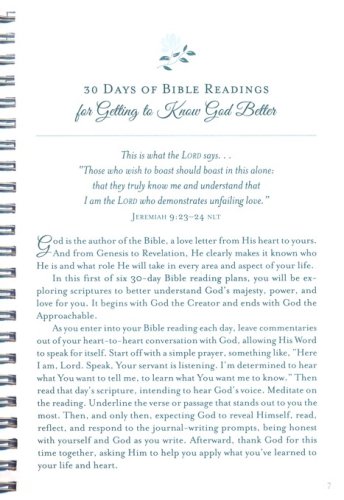 30 Days of Bible Readings
for Getting to Know God Better
This is what the LORD says. . .
"Those who wish to boast should boast in this alone:
that they truly know me and understand that
I am the LORD who demonstrates unfailing love."
Jeremiah 9:23–24 NLT
God is the author of the Bible, a love letter from His heart to yours.
And from Genesis to Revelation, He clearly makes it known who
He is and what role He will take in every area and aspect of your life.
In this first of six 30-day Bible reading plans, you will be ex-
ploring scriptures to better understand God's majesty, power, and
love for you. It begins with God the Creator and ends with God the
Approachable.
As you enter into your Bible reading each day, leave commentaries
out of your heart-to-heart conversation with God, allowing His Word
to speak for itself. Start off with a simple prayer, something like, "Here
I am, Lord. Speak, Your servant is listening. I'm determined to hear
what You want to tell me, to learn what You want me to know." Then
read that day's scripture, intending to hear God's voice. Meditate on
the reading. Underline the verse or passage that stands out to you the
most. Then, and only then, expecting God to reveal Himself, read,
reflect, and respond to the journal-writing prompts, being honest
with yourself and God as you write. Afterward, thank God for this
time together, asking Him to help you apply what you've learned to
your life and heart.
7